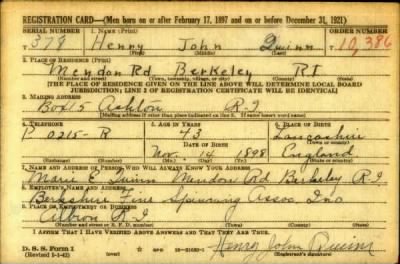 REGISTRATION CARD—(Men born on or after February 17, 1897 and on or before December 31, 1921)
SERIAL NUMBER 1. NAME (Print) ORDER NUMBER
T 379 Henry John Quinn T 10,286
(First) (Middle) (Last)
2. PLACE OF RESIDENCE (Print)
Mendon Rd Berkeley RI
(Number and street) (Town, township, village, or city) (County) (State)
[THE PLACE OF RESIDENCE GIVEN ON THE LINE ABOVE WILL DETERMINE LOCAL BOARD
JURISDICTION; LINE 2 OF REGISTRATION CERTIFICATE WILL BE IDENTICAL]
3. MAILING ADDRESS
Box 15 Ashton R.I
[Mailing address if other than place indicated on line 2. If same insert word same]
4. TELEPHONE 5. AGE IN YEARS 6. PLACE OF BIRTH
P 0215-R 43 Lancashire
DATE OF BIRTH (Town or county)
Nov. 14 1898 England
(Exchange) (Number) (Mo.) (Day) (Yr.) (State or country)
7. NAME AND ADDRESS OF PERSON WHO WILL ALWAYS KNOW YOUR ADDRESS
Marie E Quinn Mendon Rd Berkeley RI
8. EMPLOYER'S NAME AND ADDRESS
Berkshire Fine Spinning Assoc. Inc
9. PLACE OF EMPLOYMENT OR BUSINESS
Albion R.I
(Number and street or R. F. D. number) (Town) (County) (State)
I AFFIRM THAT I HAVE VERIFIED ABOVE ANSWERS AND THAT THEY ARE TRUE.
D. S. S. Form 1
(Revised 1-1-42) Henry John Quinn
(Registrant's signature)